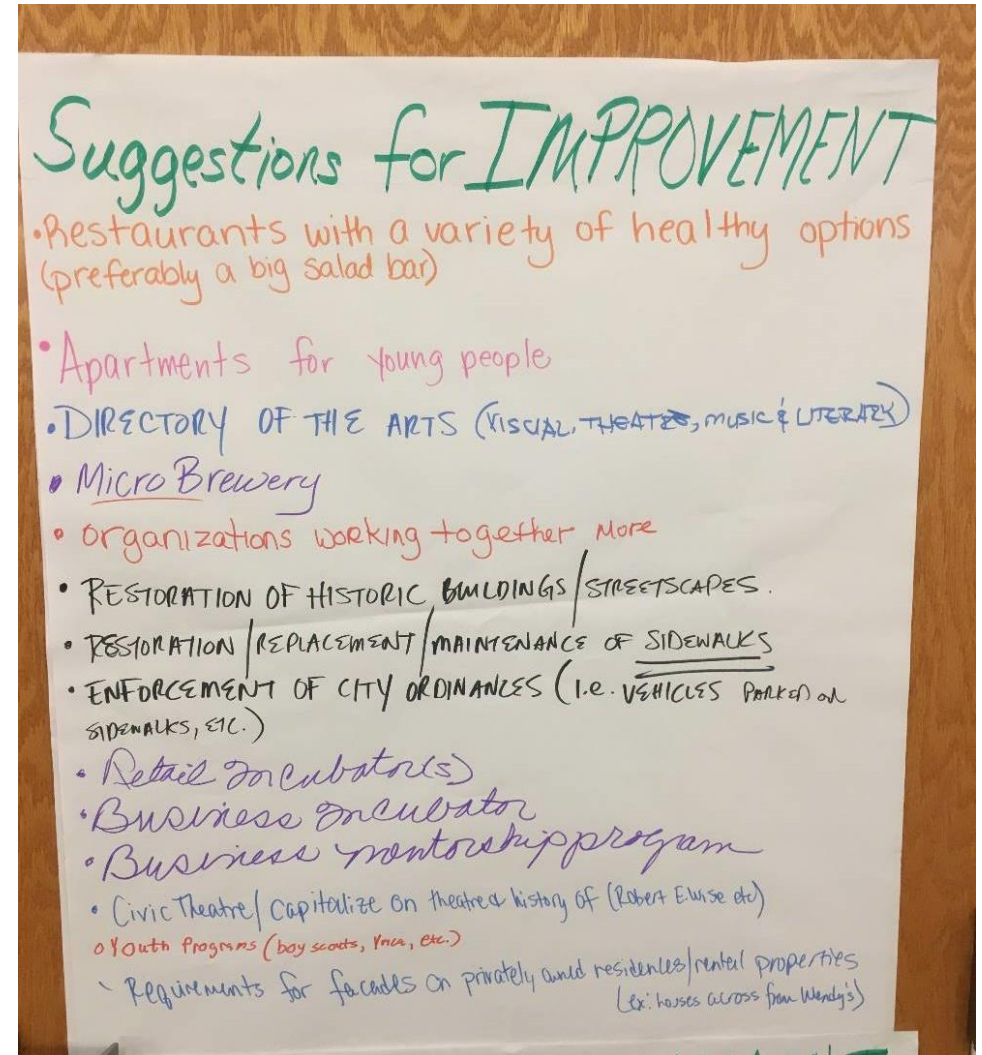 Suggestions for IMPROVEMENT
•Restaurants with a variety of healthy options
(preferably a big salad bar)
•Apartments for young people
•DIRECTORY OF THE ARTS (VISUAL, THEATRE, MUSIC & LITERARY)
•Micro Brewery
•organizations working together more
•RESTORATION OF HISTORIC BUILDINGS/STREETSCAPES.
•RESTORATION/REPLACEMENT/MAINTENANCE OF SIDEWALKS
•ENFORCEMENT OF CITY ORDINANCES (I.e. VEHICLES PARKED ON
SIDEWALKS, ETC.)
•Retail Incubator(s)
•Business Incubator
•Business mentorship program
•Civic Theatre/Capitalize on theatre & history of (Robert E. Wise etc)
o Youth Programs (boy scouts, Ymca, etc.)
Requirements for facades on privately owned residences/rental properties
(ex: houses across from Wendy's)